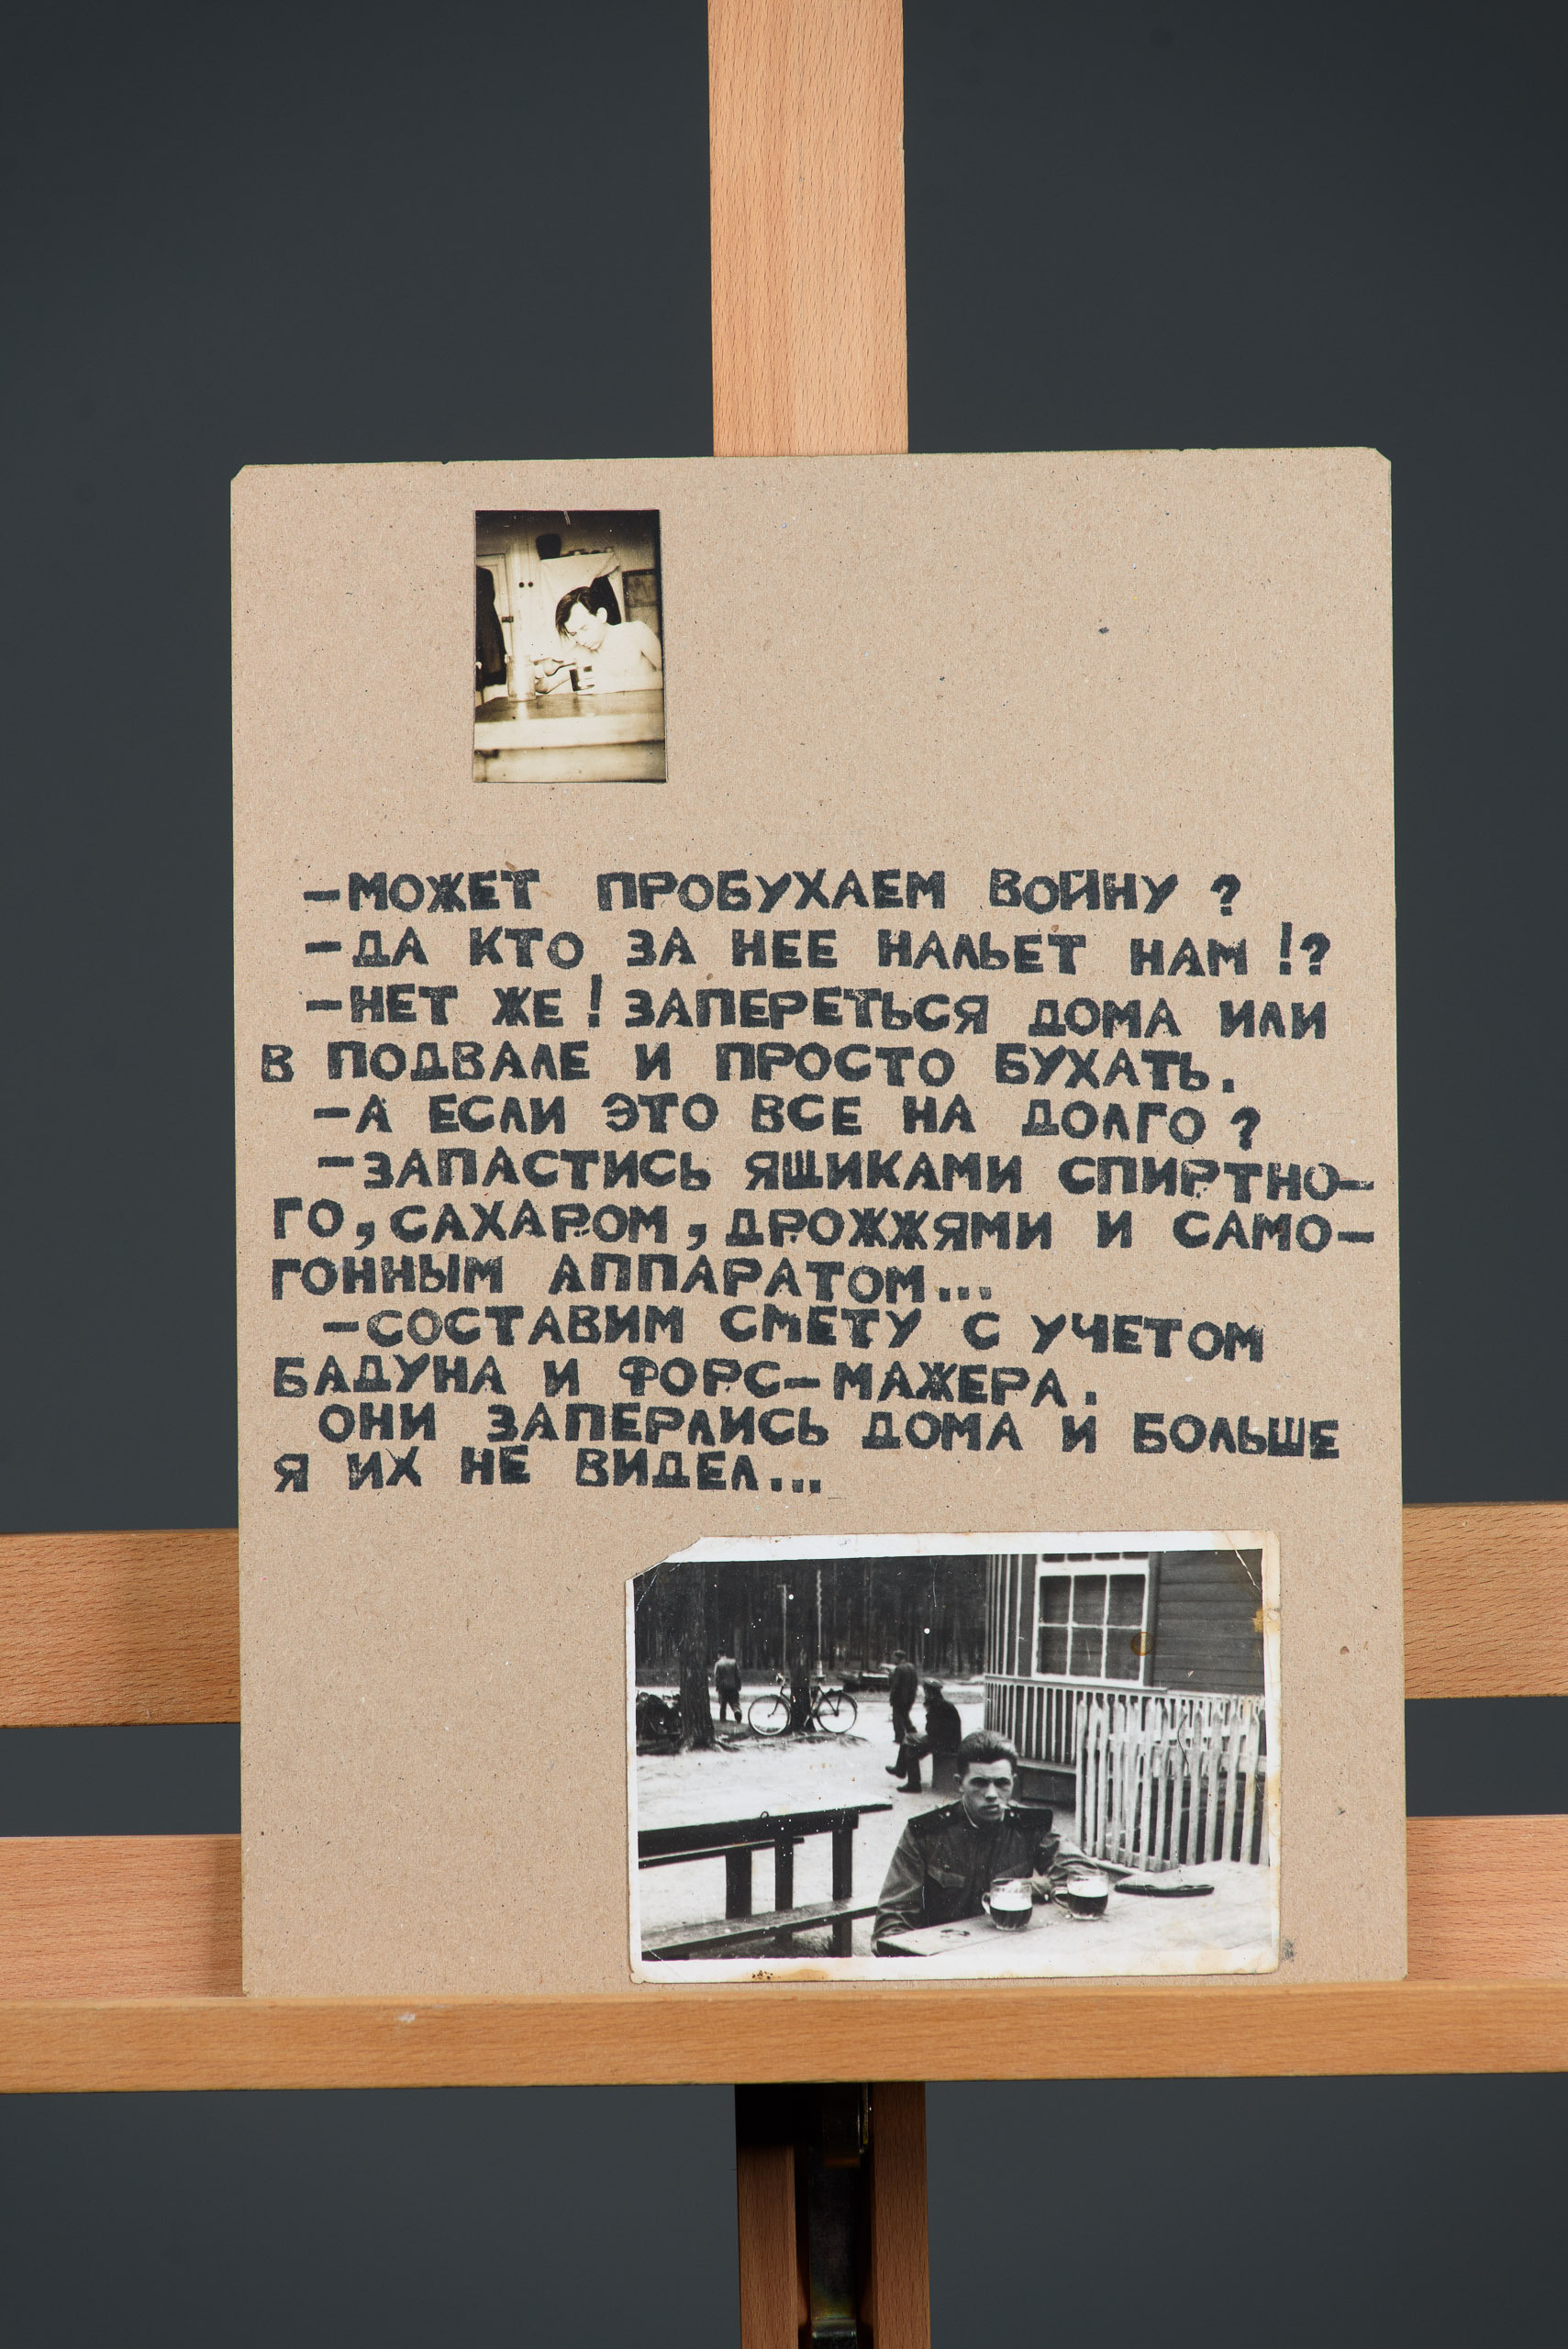 -МОЖЕТ ПРОБУХАЕМ ВОЙНУ ?
-ДА КТО ЗА НЕЕ НАЛЬЕТ НАМ !?
-НЕТ ЖЕ ! ЗАПЕРЕТЬСЯ ДОМА ИЛИ
В ПОДВАЛЕ И ПРОСТО БУХАТЬ.
-А ЕСЛИ ЭТО ВСЕ НА ДОЛГО ?
-ЗАПАСТИСЬ ЯЩИКАМИ СПИРТНО-
ГО, САХАРОМ, ДРОЖЖЯМИ И САМО-
ГОННЫМ АППАРАТОМ...
-СОСТАВИМ СМЕТУ С УЧЕТОМ
БАДУНА И ФОРС-МАЖЕРА.
ОНИ ЗАПЕРЛИСЬ ДОМА И БОЛЬШЕ
Я ИХ НЕ ВИДЕЛ...